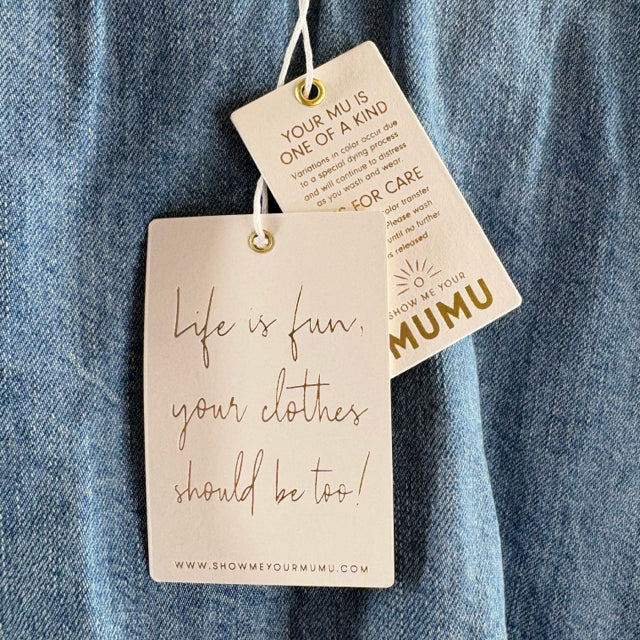 YOUR MU IS
ONE OF A KIND
Variations in color occur due
to a special dying process
and will continue to distress
as you wash and wear.
FOR CARE
color transfer
Please wash
until no further
released
SHOW ME YOUR
MUMU
Life is fun,
your clothes
should be too!
WWW.SHOWMEYOURMUMU.COM